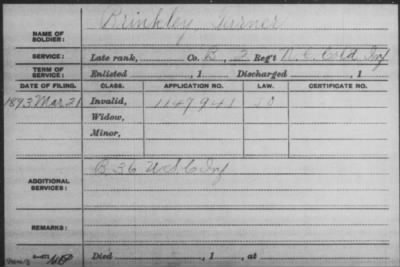 Brinkley Turner
NAME OF SOLDIER:
SERVICE: Late rank, Co. B, 2 Reg't N. C. Cold Inf
TERM OF SERVICE: Enlisted , 1 Discharged , 1
DATE OF FILING. CLASS. APPLICATION NO. LAW. CERTIFICATE NO.
1893 Mar 21 Invalid, 1147941
Widow,
Minor,
B 36 USC Inf
ADDITIONAL SERVICES:
REMARKS:
Died , 1 , at